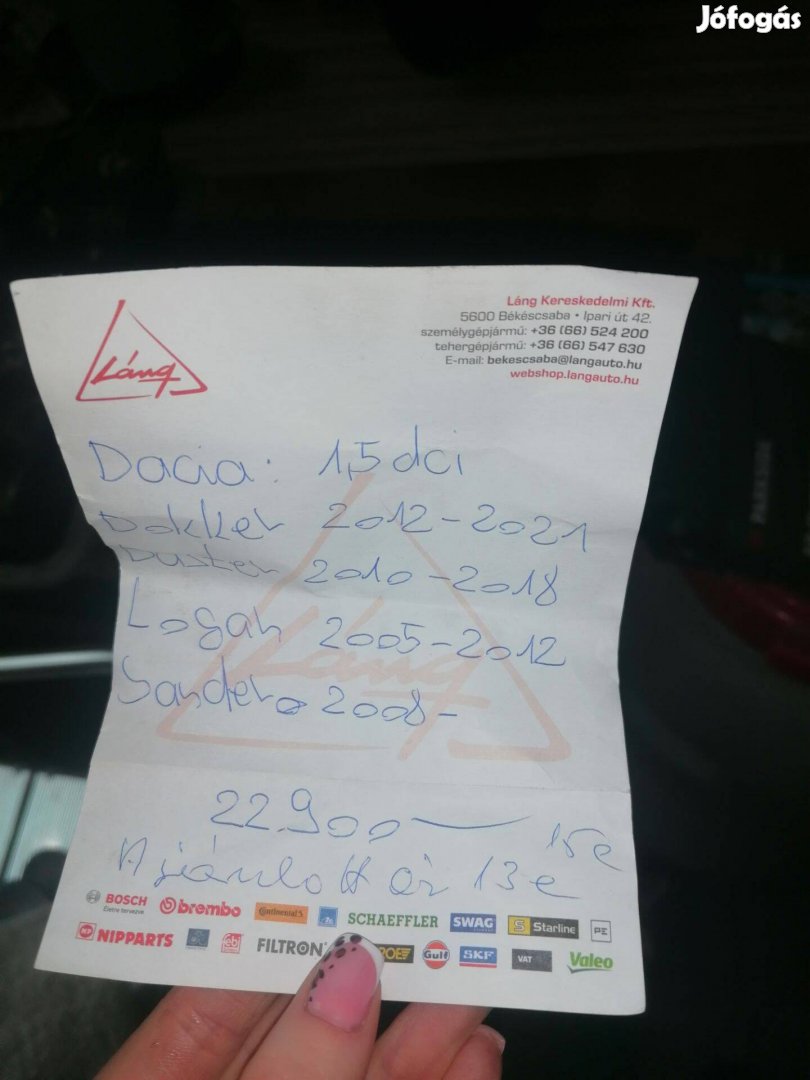 Jófogás
Láng
Láng Kereskedelmi Kft.
5600 Békéscsaba • Ipari út 42.
személygépjármű: +36 (66) 524 200
tehergépjármű: +36 (66) 547 630
E-mail: bekescsaba@langauto.hu
webshop.langauto.hu
Dacia: 1,5 dci
Dokker 2012-2021
Duster 2010-2018
Logan 2005-2012
Láng
Sandero 2008-
22.900
15e
Ajánlott ár 13e
BOSCH
Életre tervezve
brembo
Ontinental
SCHAEFFLER
SWAG
Starline
PE
NIPPARTS
febi
FILTRON
ROE
Gulf
SKF
VAT
Valeo
PARKSIDE